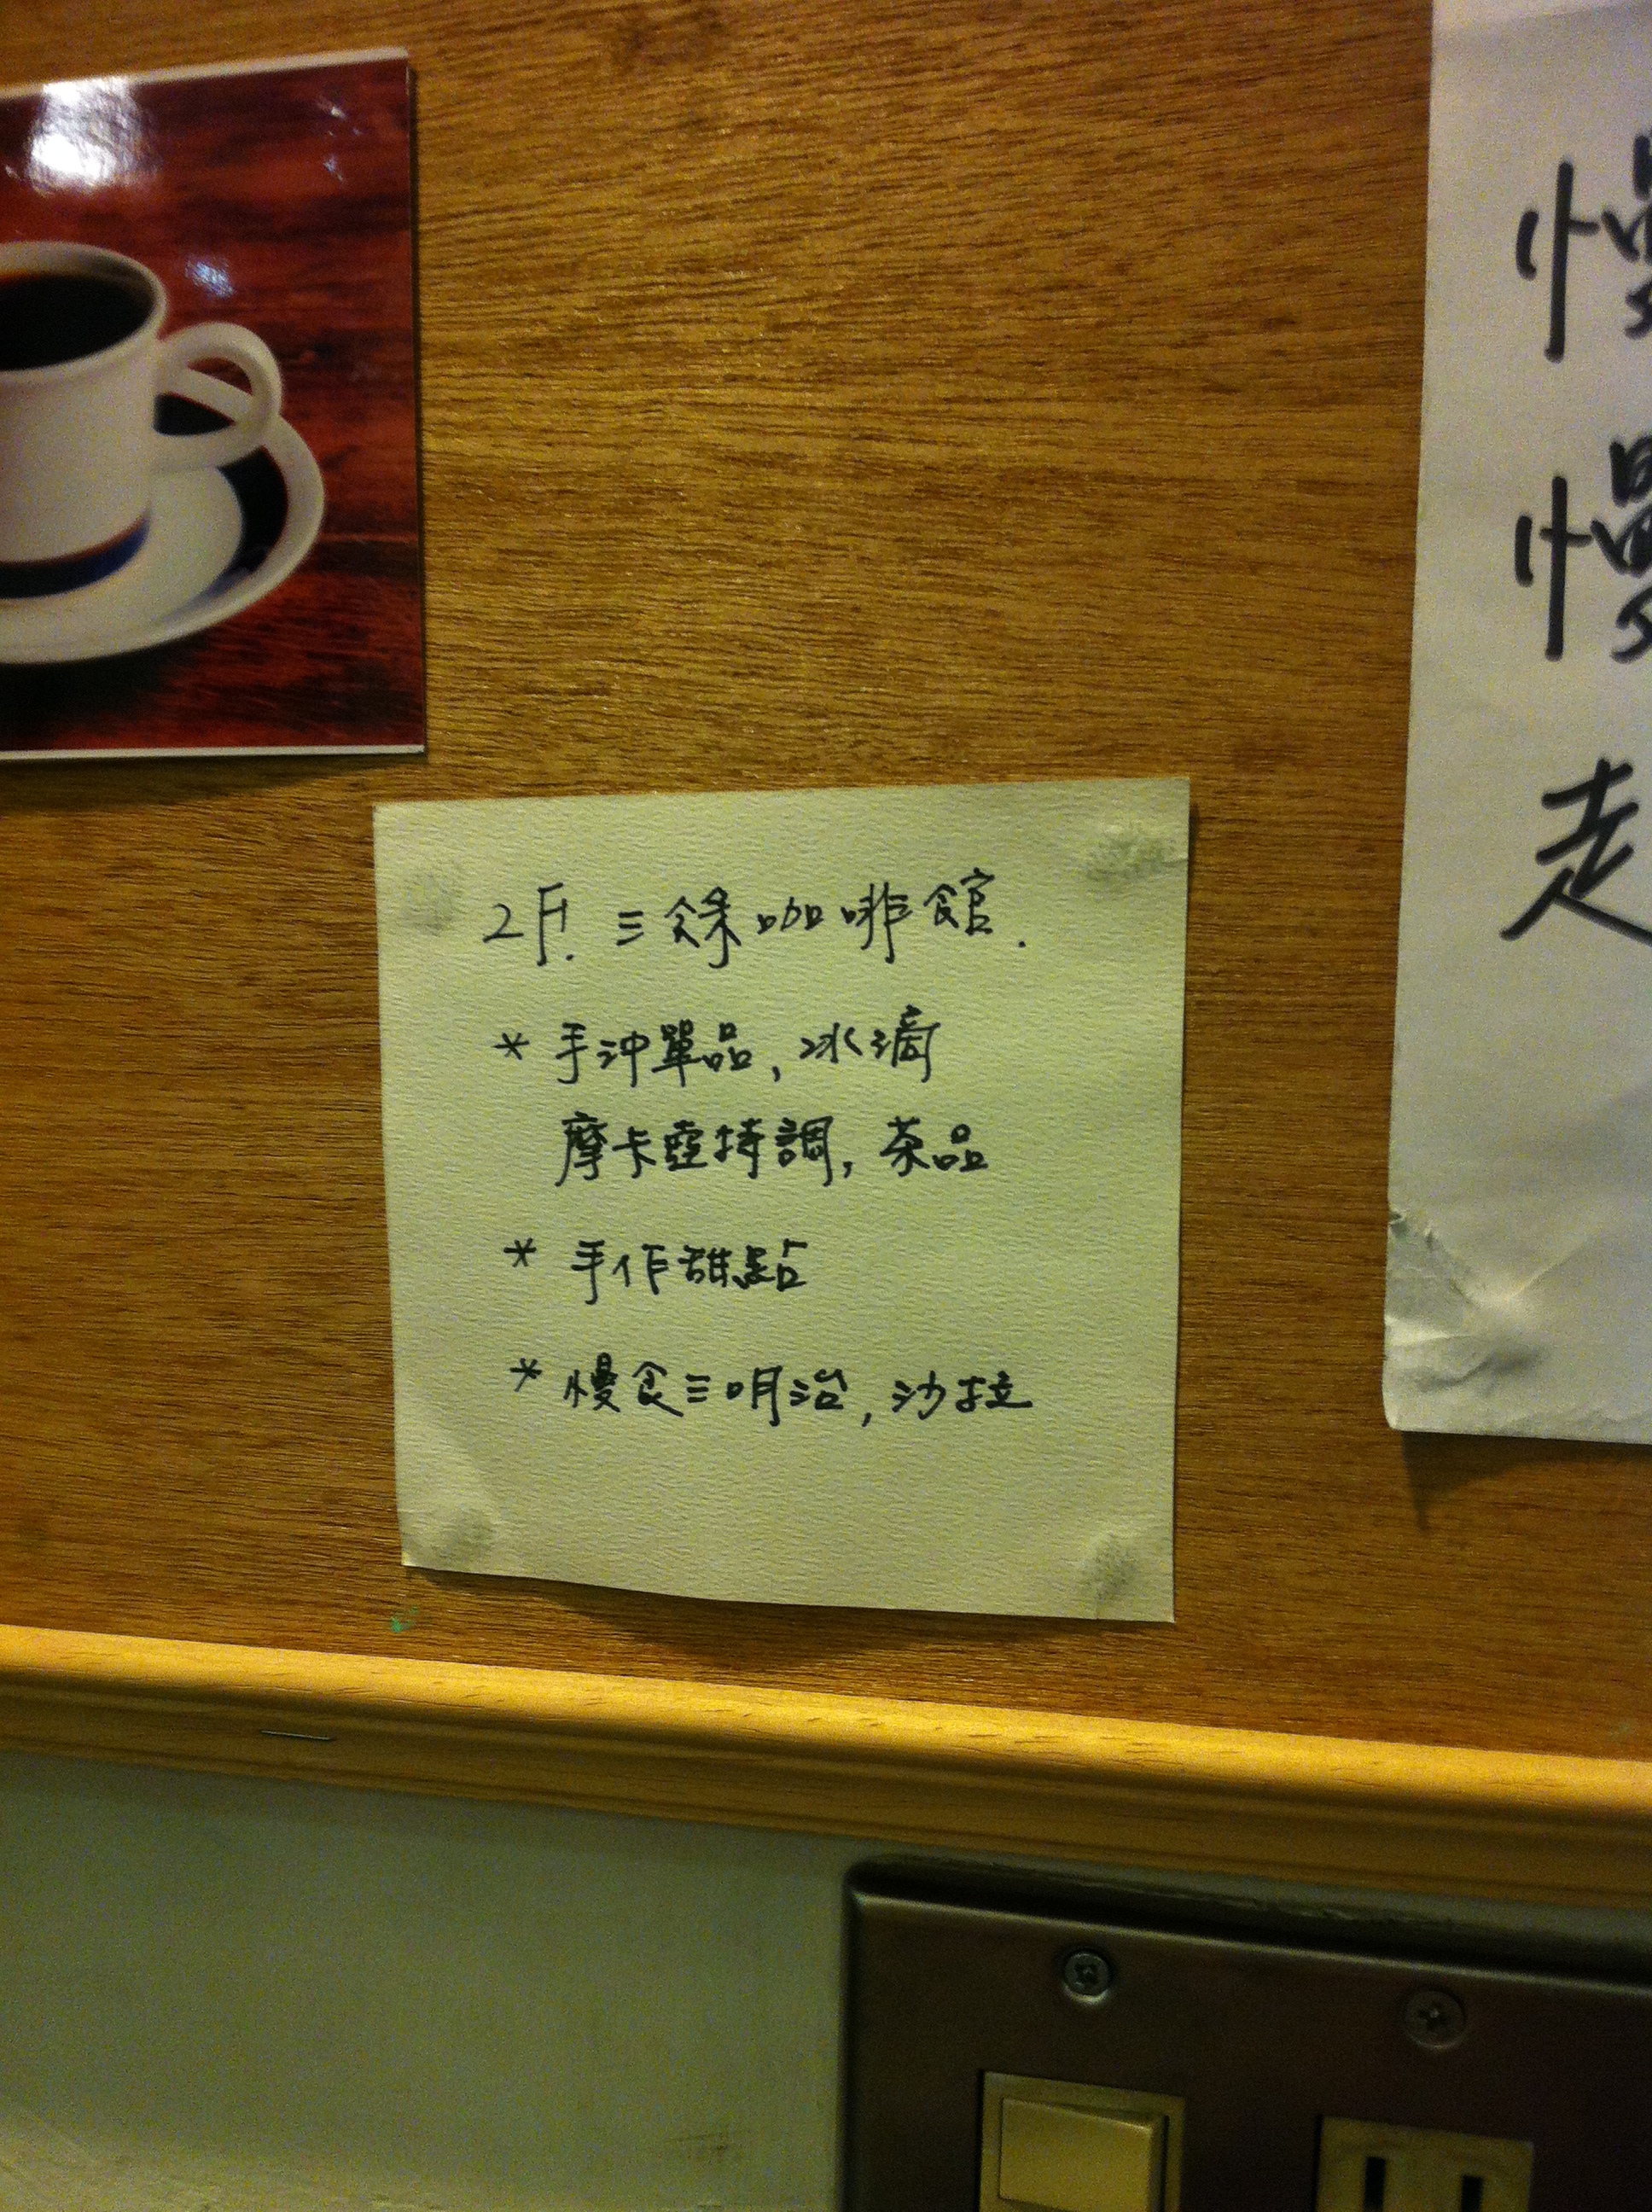 2F. 三餘咖啡館.
* 手沖單品, 冰滴
摩卡壺特調, 茶品
* 手作甜點
* 慢食三明治, 沙拉
慢慢走